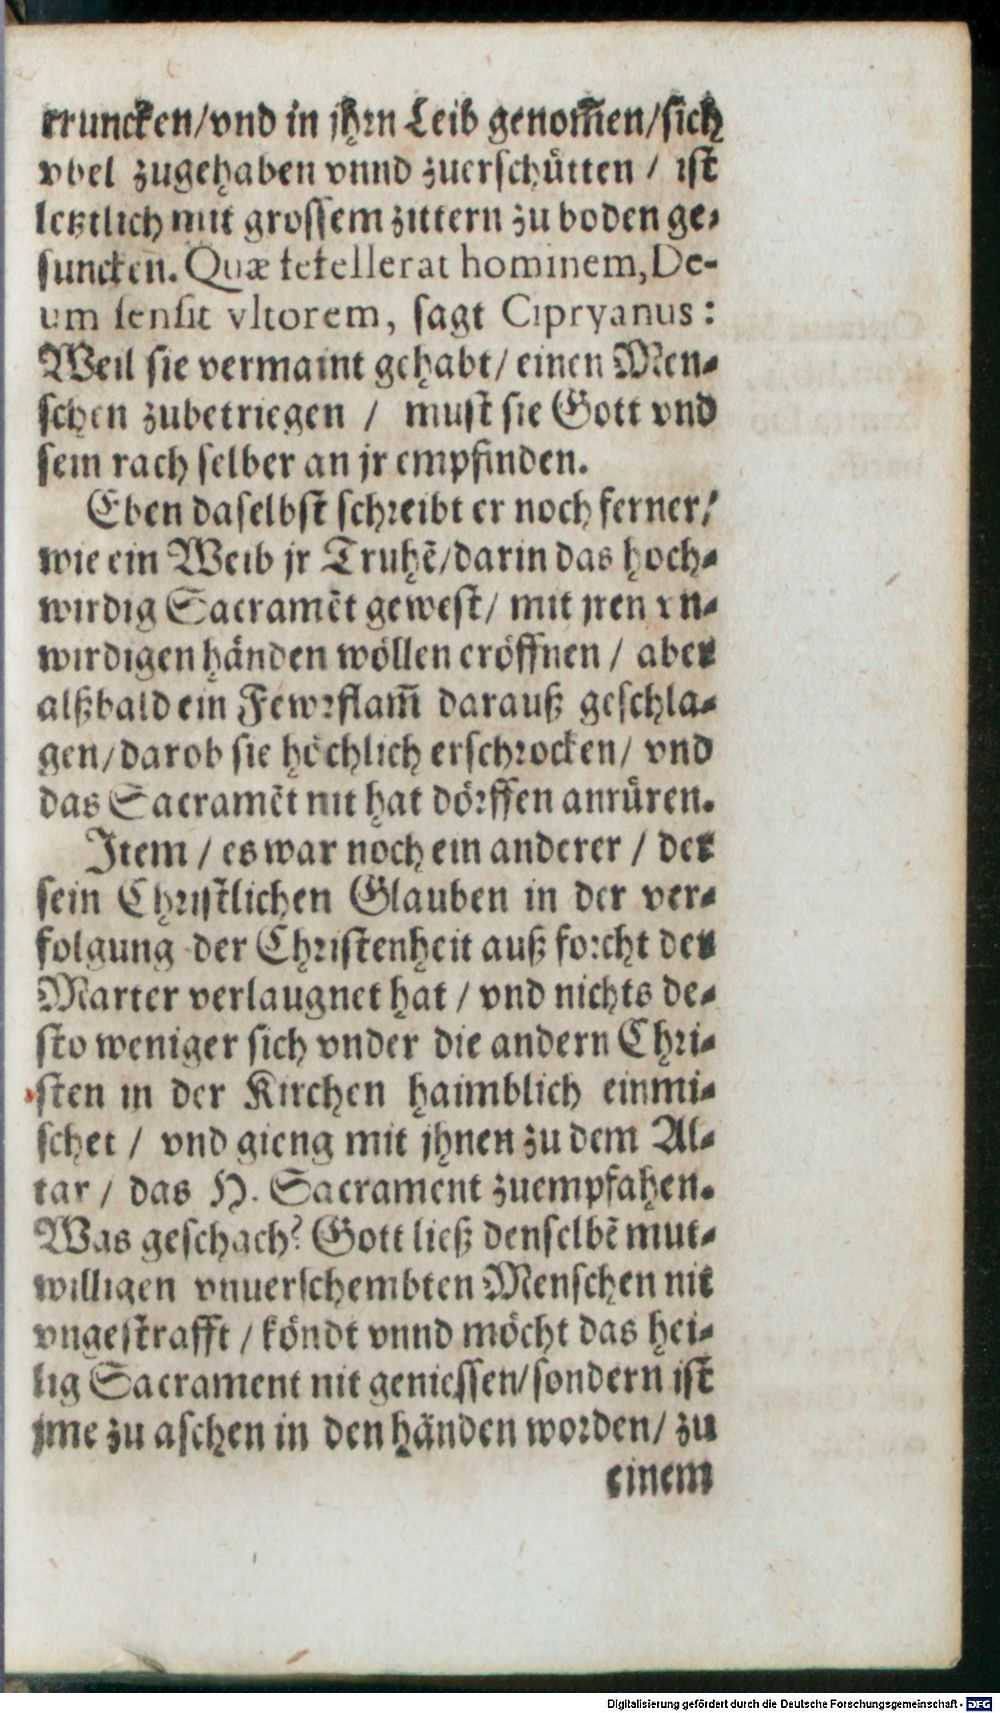 truncken/vnd in jhrn Leib genom̃en/sich
vbel zugehaben vnnd zuerschütten / ist
letztlich mit grossem zittern zu boden ge-
suncken. Quæ fefellerat hominem, De-
um sensit vltorem, sagt Cipryanus:
Weil sie vermaint gehabt/ einen Men-
schen zubetriegen / must sie Gott vnd
sein rach selber an jr empfinden.
Eben daselbst schreibt er noch ferner/
wie ein Weib jr Truhẽ/darin das hoch-
wirdig Sacramẽt gewest/ mit jren vn-
wirdigen händen wöllen eröffnen / aber
alßbald ein Fewrflam̃ darauß geschla-
gen/darob sie höchlich erschrocken/ vnd
das Sacramẽt nit hat dörffen anrüren.
Item / es war noch ein anderer / der
sein Christlichen Glauben in der ver-
folgung der Christenheit auß forcht der
Marter verlaugnet hat / vnd nichts de-
sto weniger sich vnder die andern Chri-
sten in der Kirchen haimblich einmi-
schet / vnd gieng mit jhnen zu dem Al-
tar / das H. Sacrament zuempfahen.
Was geschach? Gott ließ denselbẽ mut-
willigen vnuerschembten Menschen nit
vngestrafft / köndt vnnd möcht das hei-
lig Sacrament nit geniessen/sondern ist
jme zu aschen in den händen worden/ zu
einem
Digitalisierung gefördert durch die Deutsche Forschungsgemeinschaft - DFG